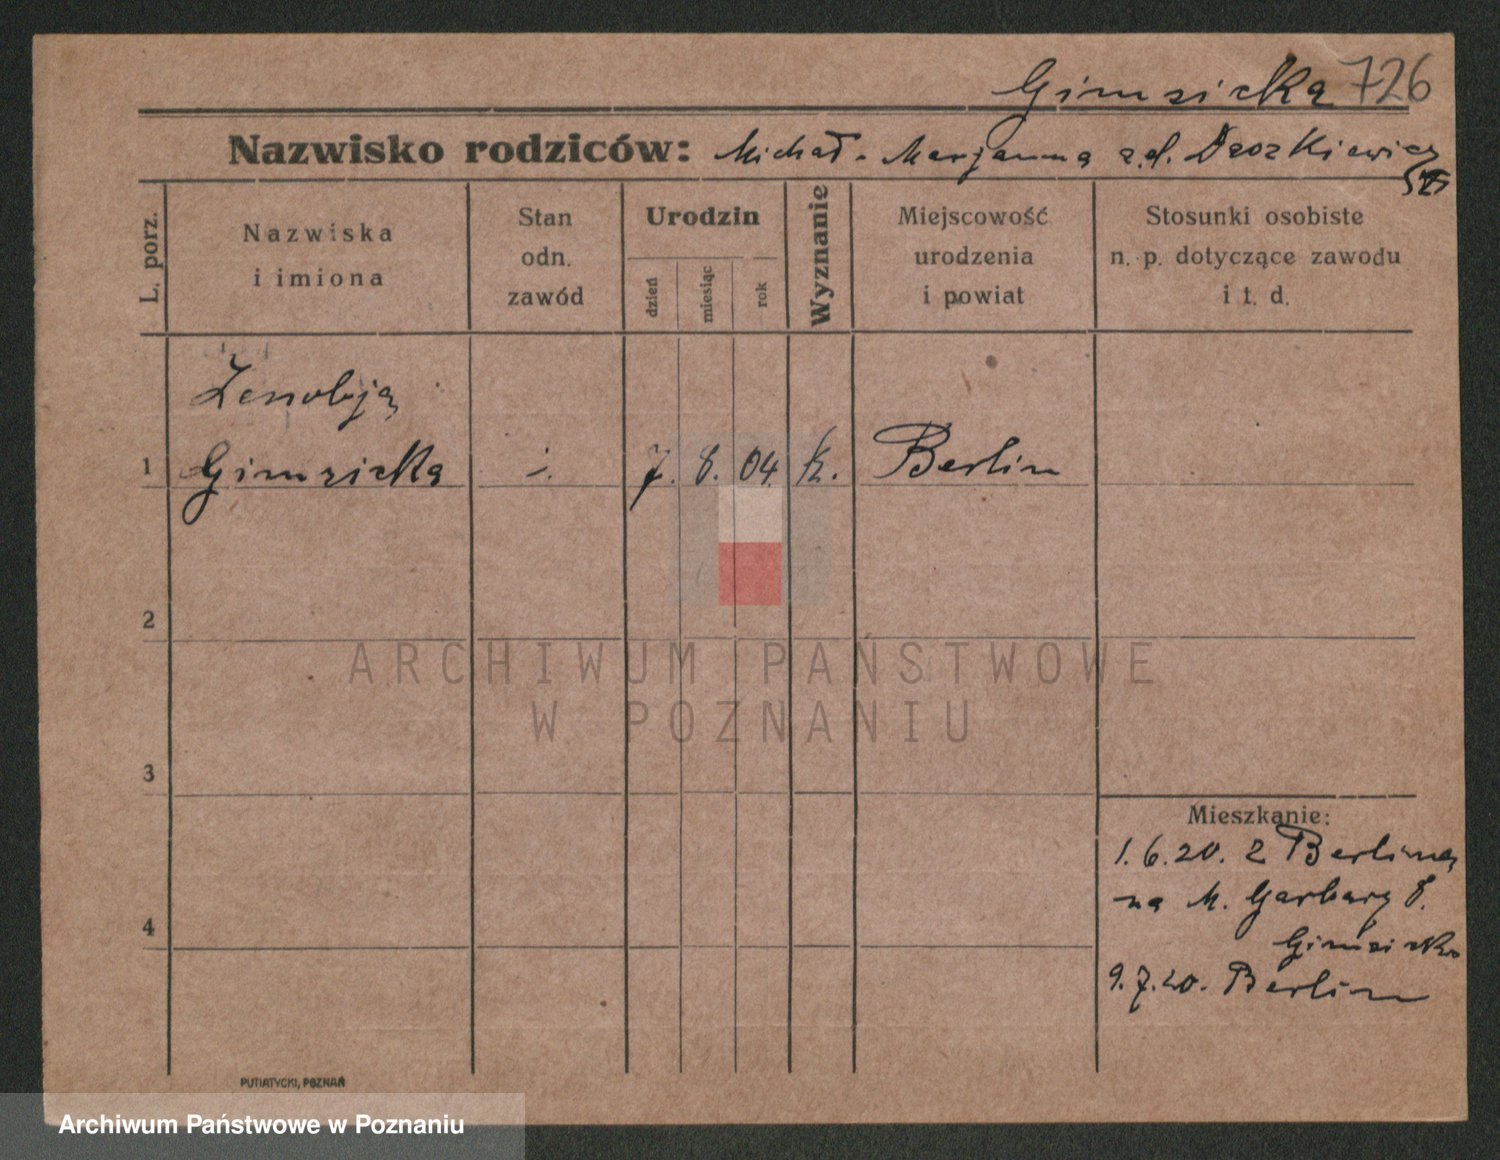 Gimzicka 726
Nazwisko rodziców: Michał - Marjanna z.d. Drozkiewicz
L. porz.
Nazwiska
i imiona
Stan
odn.
zawód
Urodzin
dzień
miesiąc
rok
Wyznanie
Miejscowość
urodzenia
i powiat
Stosunki osobiste
n. p. dotyczące zawodu
i t. d.
Zenobja
1 Gimzicka 7. 8. 04. k. Berlin
2
3
4
Mieszkanie:
1.6.20. z Berlina
na M. Garbary 8.
Gimzicka
9.7.20. Berlin
PUTIATYCKI, POZNAŃ
ARCHIWUM PAŃSTWOWE
W POZNANIU
Archiwum Państwowe w Poznaniu